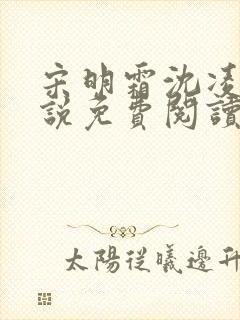 宋明霜沈凌
說免費閱讀
太陽從曦邊升